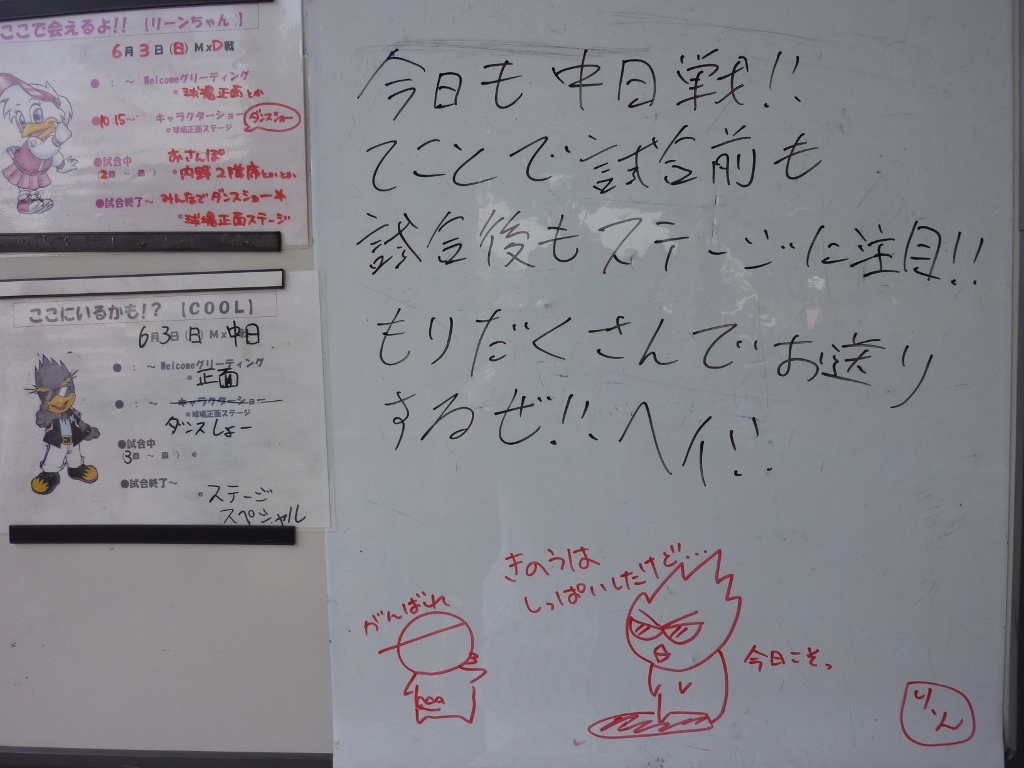 ここで会えるよ!! 【リーンちゃん】
6月3日(日)M×D戦
●　:　～ Welcomeグリーティング
・球場正面とか
●10:15～ キャラクターショー ダンスショー
●球場正面ステージ
●試合中 おさんぽ
(2回～　回) ・内野2階席とかとか
●試合終了～ みんなでダンスショー★
・球場正面ステージ
ここにいるかも!? 【COOL】
6月3日(日)M×中日
●　:　～ Welcomeグリーティング
・正面
●　:　～ キャラクターショー
●球場正面ステージ
ダンスしょー
●試合中
(3回～　回) ●
●試合終了～
・ステージ
スペシャル
今日も中日戦!!
てことで試合前も
試合後もステージに注目!!
もりだくさんでお送り
するぜ!! ヘイ!!
きのうは
しっぱいしたけど…
がんばれ
今日こそっ
りーん